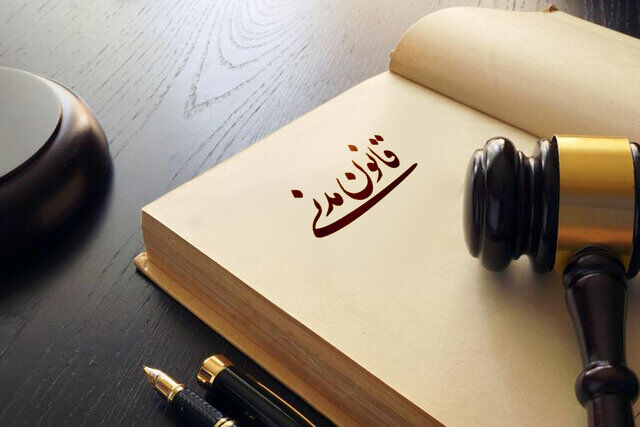 قانون مدنی